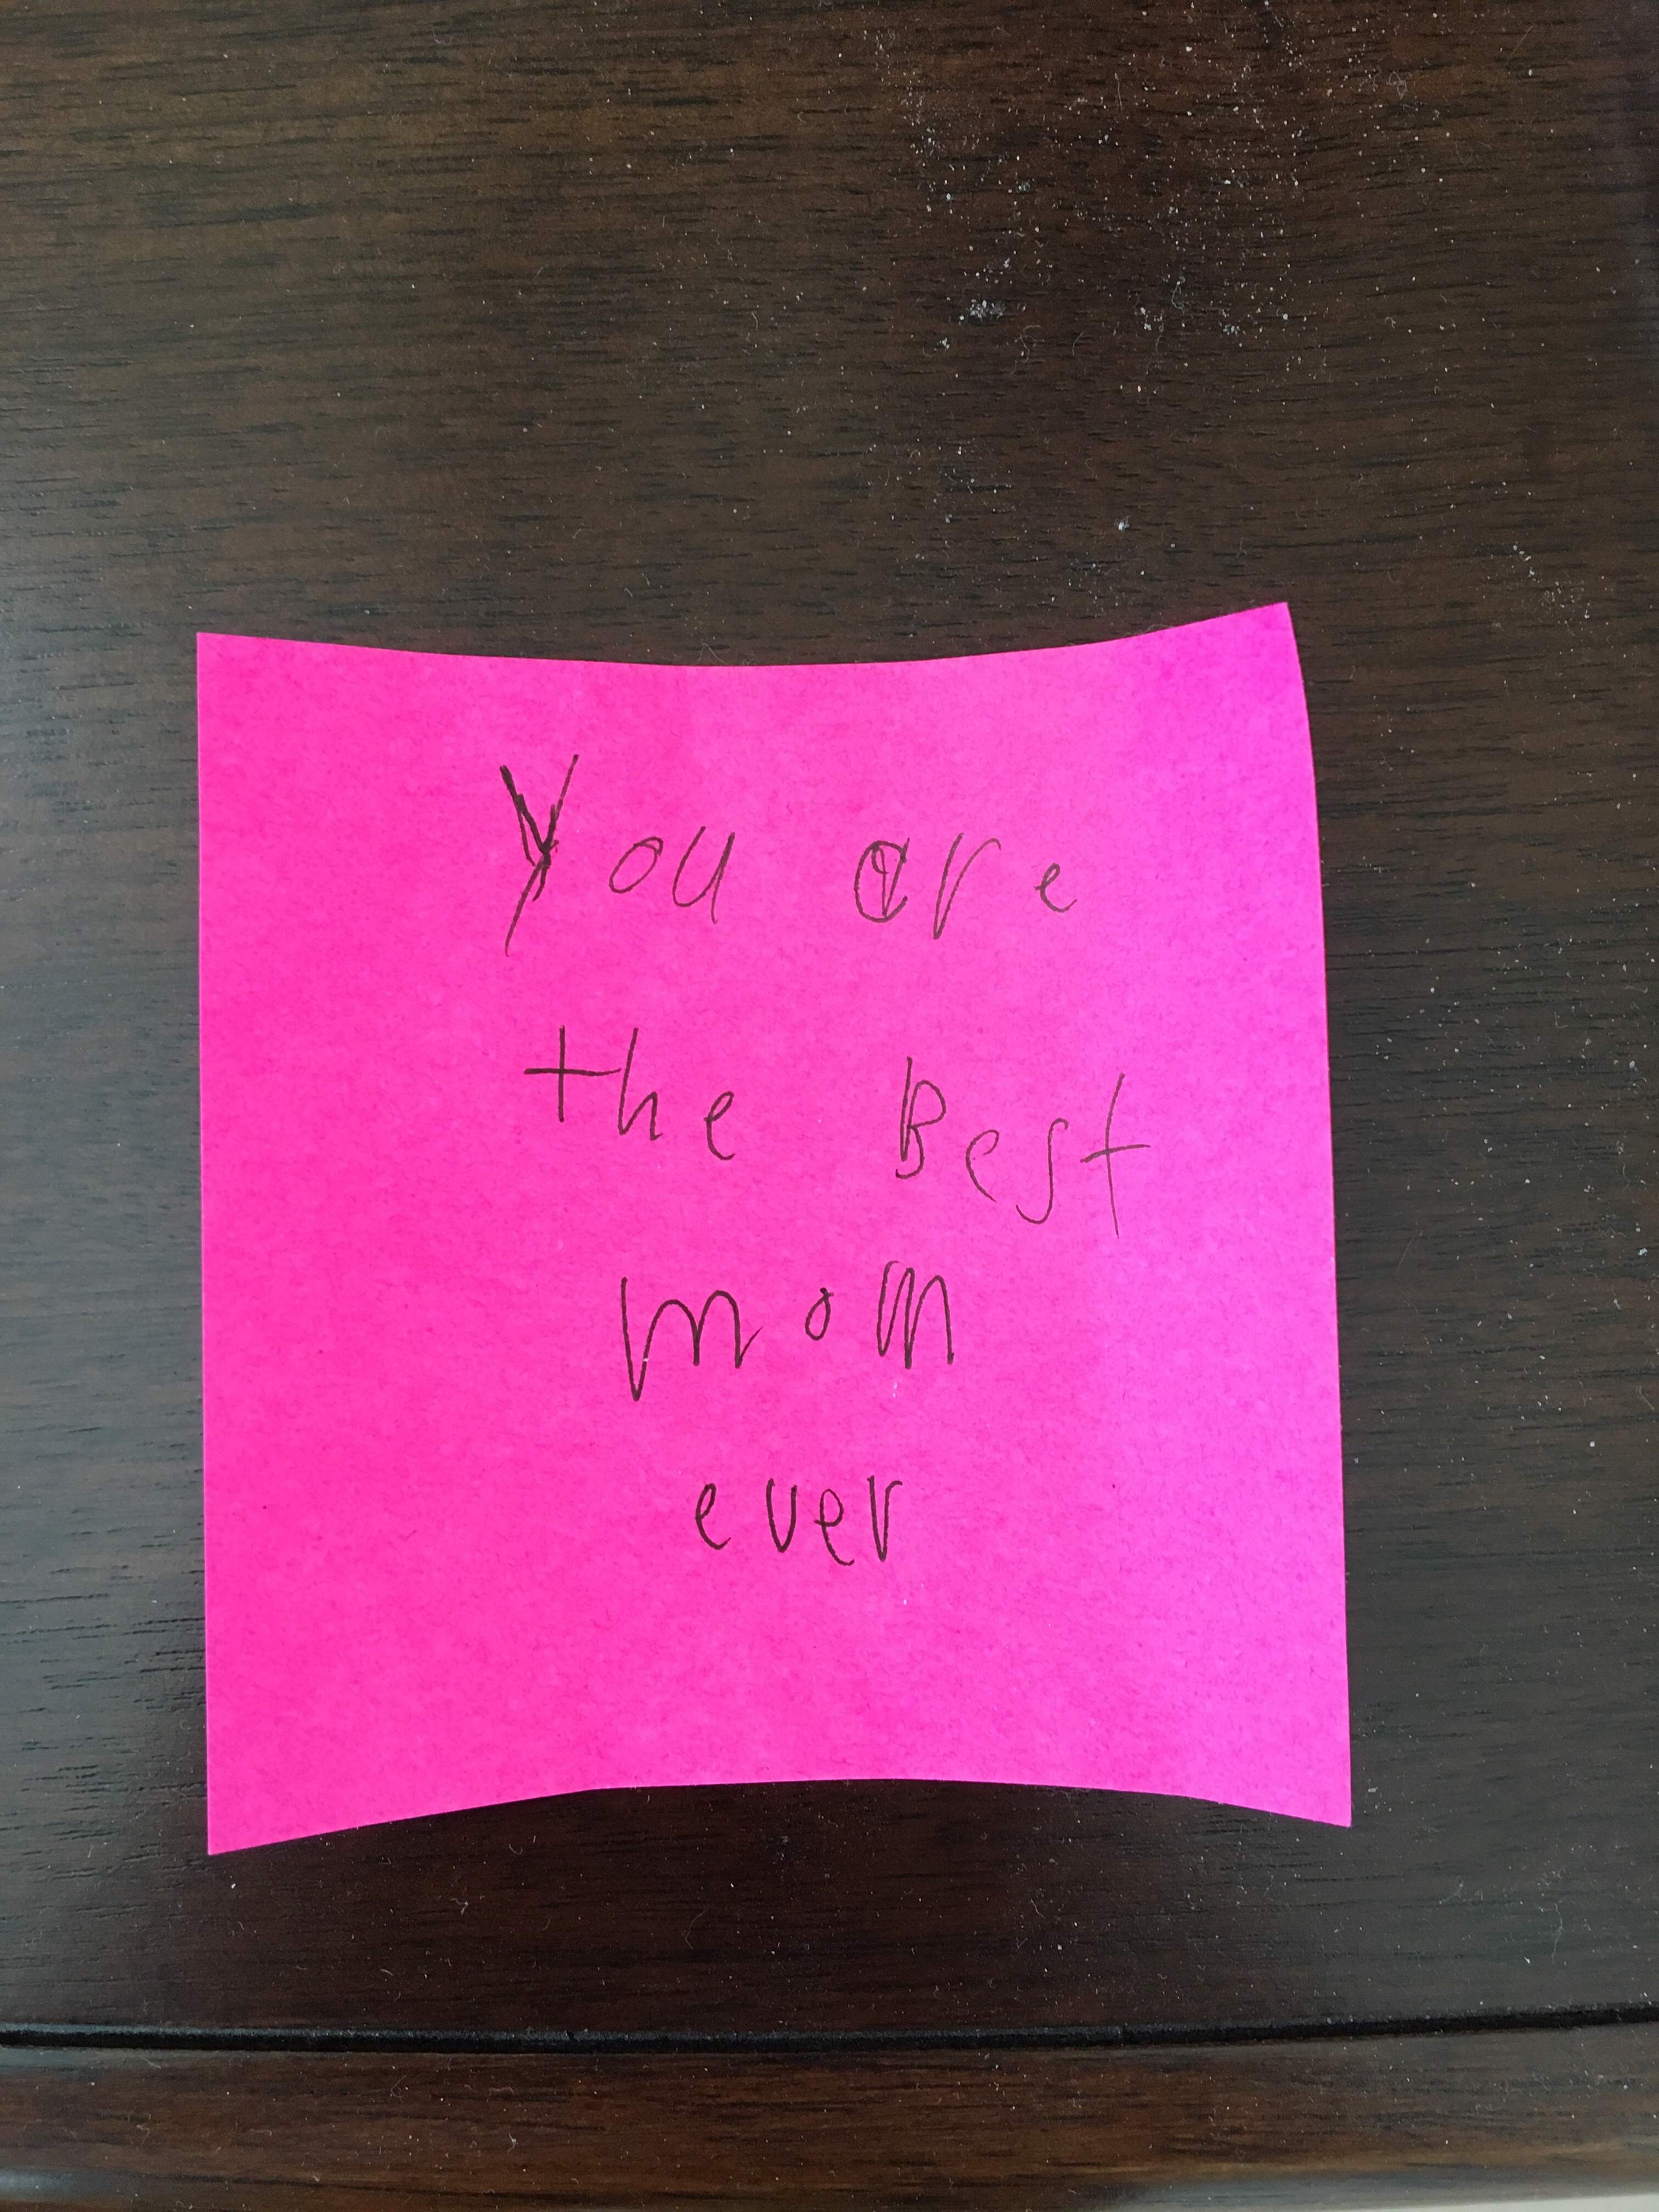 You are
the Best
mom
ever